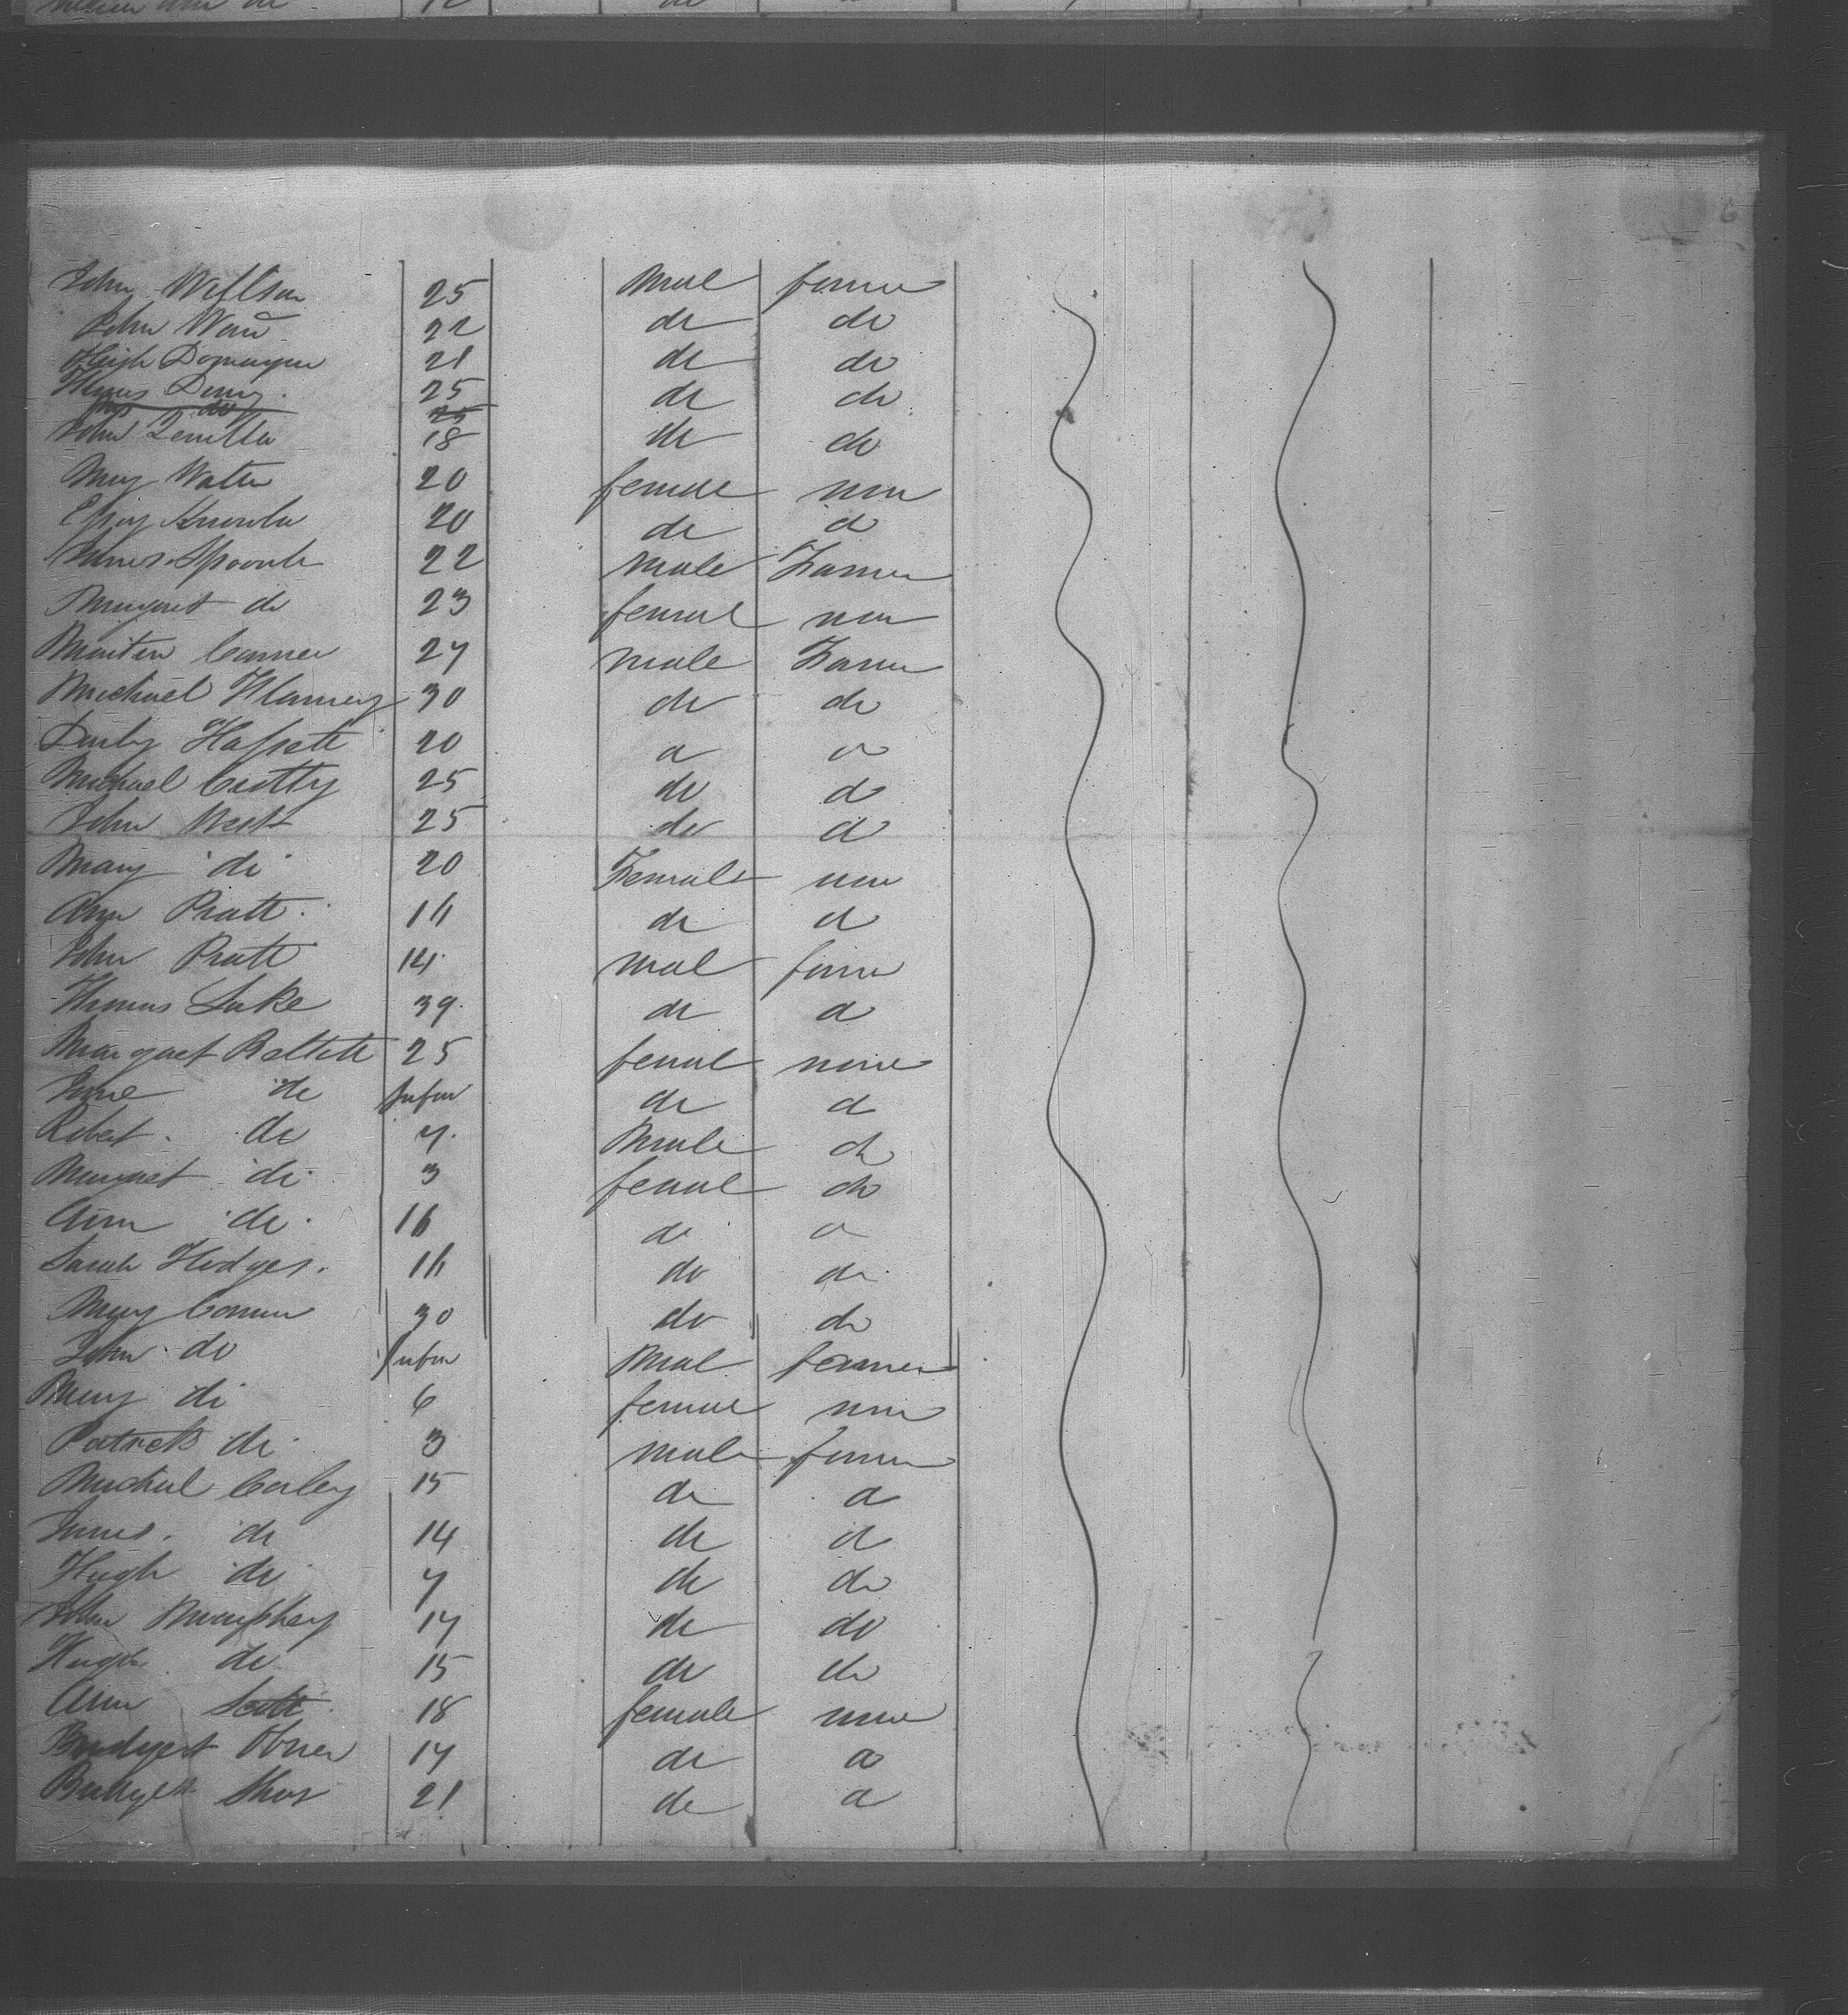 John Willson 25 Male farmer
John Ward 22 do do
Hugh 21 do do
Thomas 25 do do
do 25
John 18 do do
Mary Water 20 female non
20 do do
James 22 Male Farmer
Margaret do 23 female non
Martin Conner 27 male Farmer
Michael Flannery 30 do do
Darby Hassett 20 do do
Michael Crotty 25 do do
John West 25 do do
Mary do 20 Female non
Ann Pratt 16 do do
John Pratt 14 Male farmer
Thomas Lake 39 do do
Margaret 25 female none
Jane do Infan do do
Robert do 7 Male do
Margaret do 3 female do
Ann do 16 do do
Sarah Hodges 16 do do
Mary Conner 30 do do
John do Infan Male farmer
Mary do 6 female non
Patrick do 3 male farmer
Michael Corley 15 do do
James do 14 do do
Hugh do 7 do do
John Murphey 17 do do
Hugh do 15 do do
Ann Scott 18 female none
Bridget 17 do do
Bridget 21 do do